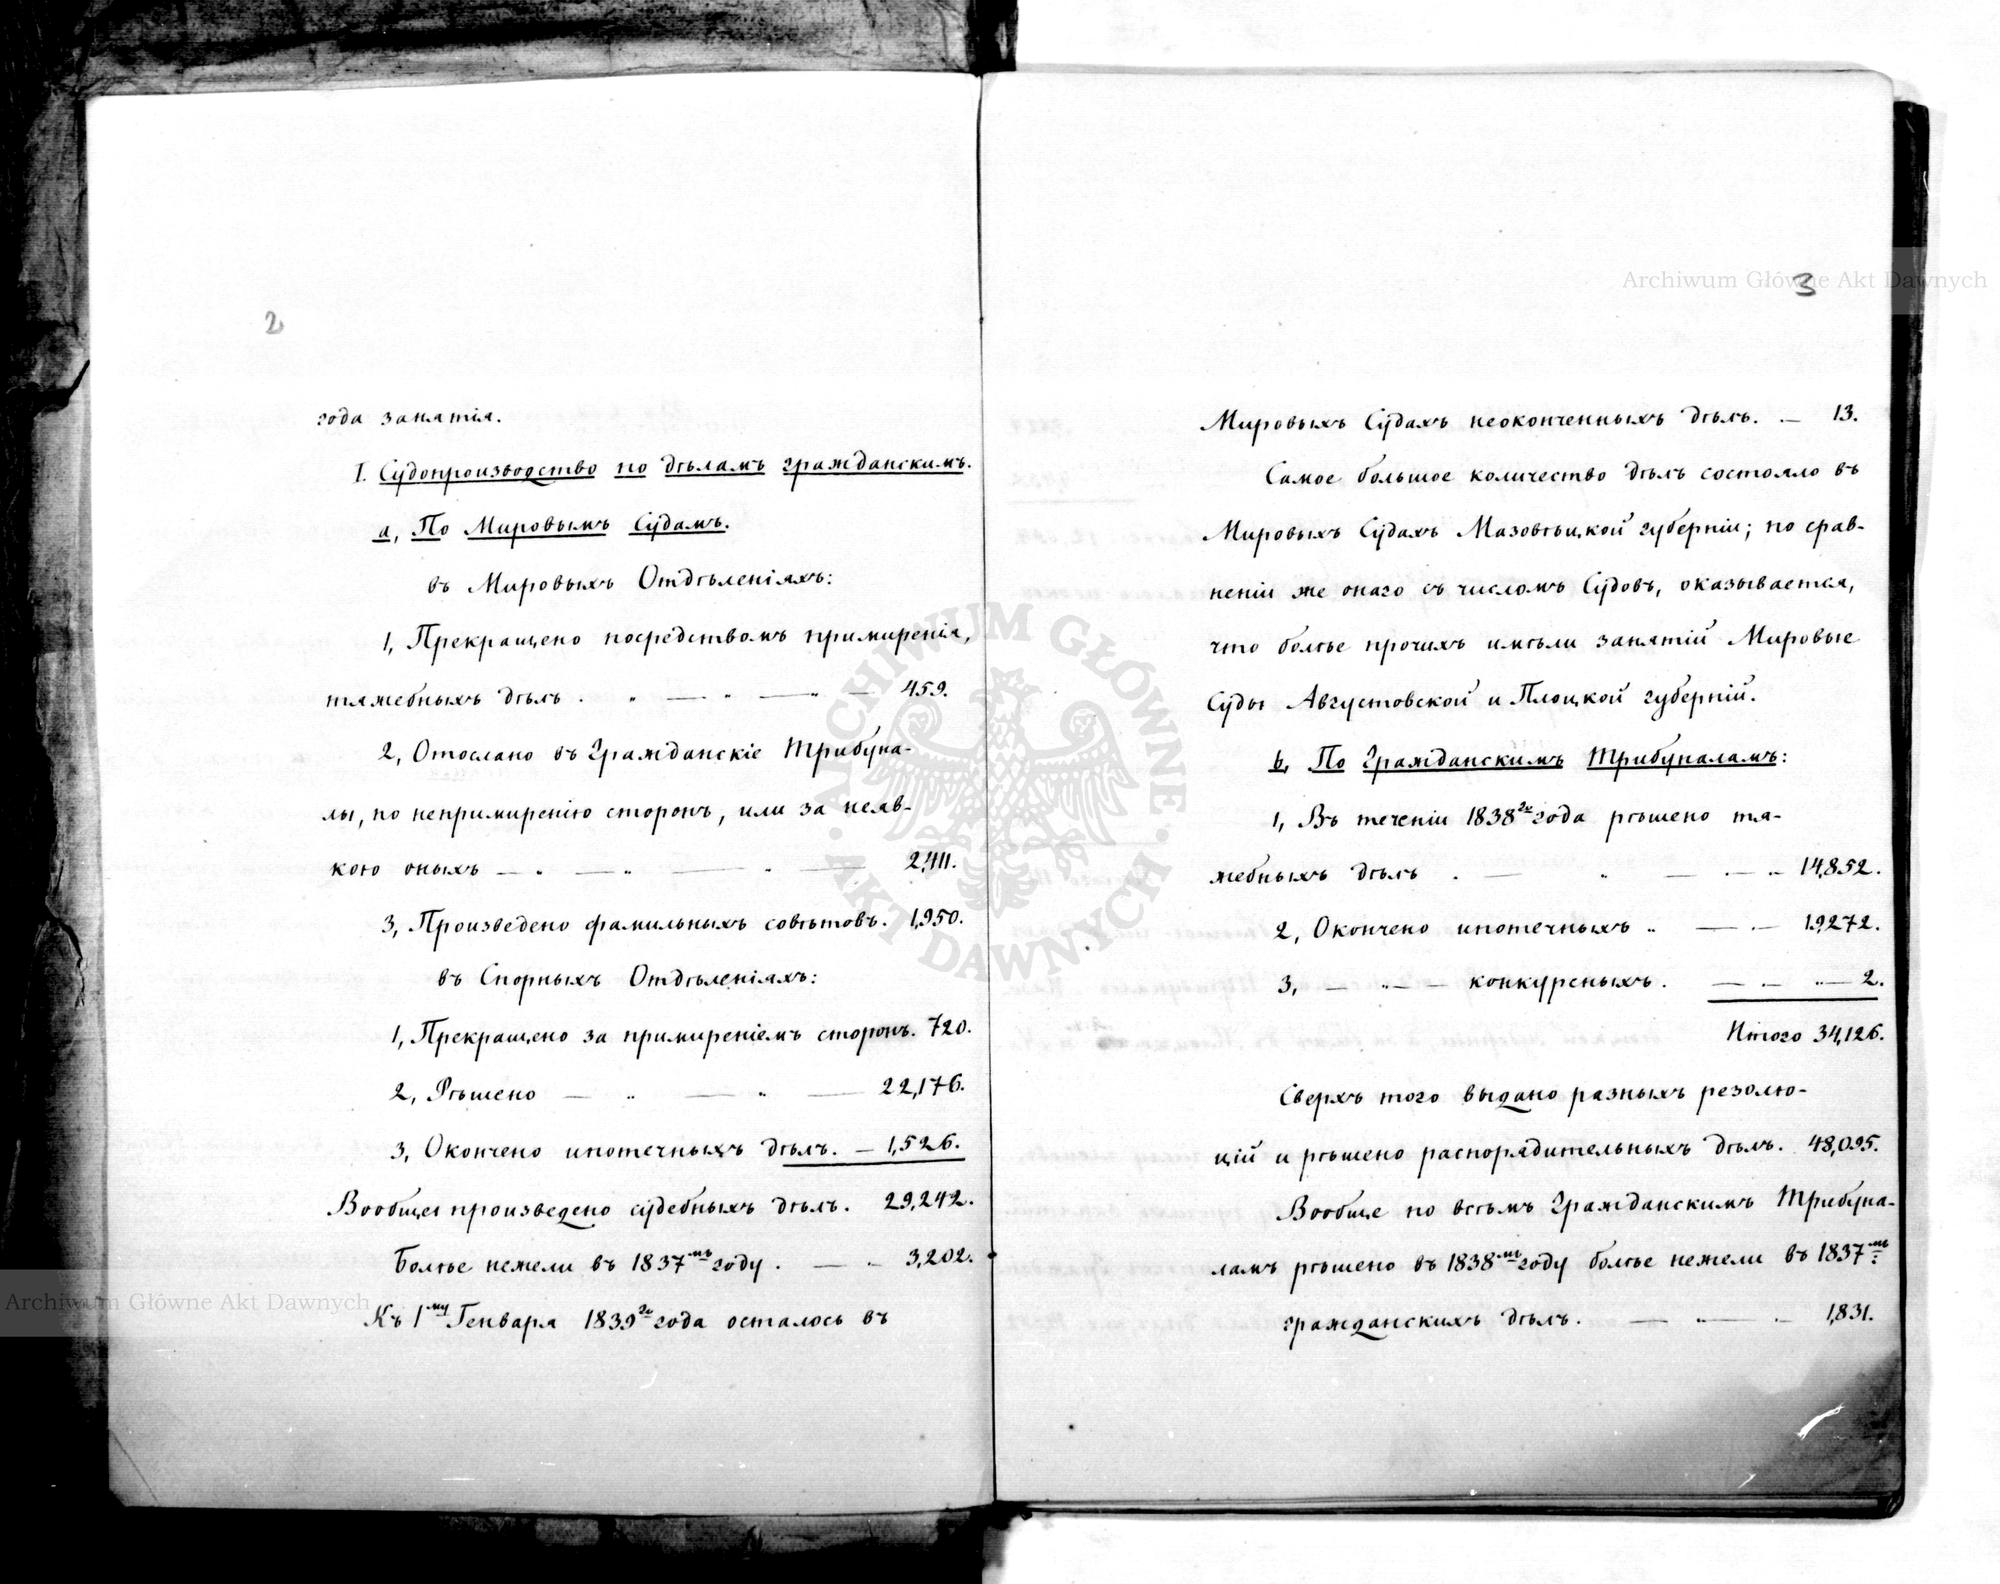 2
года занятія.
I. Судопроизводство по дѣламъ гражданскимъ.
a, По Мировымъ Судамъ.
въ Мировыхъ Отдѣленіяхъ:
1, Прекращено посредствомъ примиренія,
тяжебныхъ дѣлъ . „ — „ — „ — 459.
2, Отослано въ Гражданскіе Трибуна-
лы, по непримиренію сторонъ, или за неяв-
кою оныхъ — „ — „ — „ — 2,411.
3, Произведено фамильныхъ совѣтовъ. 1,950.
въ Спорныхъ Отдѣленіяхъ:
1, Прекращено за примиреніемъ сторонъ. 720.
2, Рѣшено — „ — „ — 22,176.
3, Окончено ипотечныхъ дѣлъ. — 1,526.
Вообще произведено судебныхъ дѣлъ. 29,242.
Болѣе нежели въ 1837мъ году . — „ 3,202.
Къ 1му Генваря 1839го года осталось въ
3
Мировыхъ Судахъ неоконченныхъ дѣлъ. — 13.
Самое большое количество дѣлъ состояло въ
Мировыхъ Судахъ Мазовѣцкой губерніи; по срав-
неніи же онаго съ числомъ Судовъ, оказывается,
что болѣе прочихъ имѣли занятій Мировые
Суды Августовской и Плоцкой губерній.
b, По Гражданскимъ Трибуналамъ:
1, Въ теченіи 1838го года рѣшено тя-
жебныхъ дѣлъ . — „ — . — „ 14,852.
2, Окончено ипотечныхъ „ — „ — 19,272.
3, — „ — конкурсныхъ . — „ — „ — 2.
Итого 34,126.
Сверхъ того выдано разныхъ резолю-
цій и рѣшено распорядительныхъ дѣлъ. 48,095.
Вообще по всѣмъ Гражданскимъ Трибуна-
ламъ рѣшено въ 1838мъ году болѣе нежели въ 1837мъ:
гражданскихъ дѣлъ. — „ — „ 1,831.
ARCHIWUM GŁÓWNE
AKT DAWNYCH
Archiwum Główne Akt Dawnych
Archiwum Główne Akt Dawnych